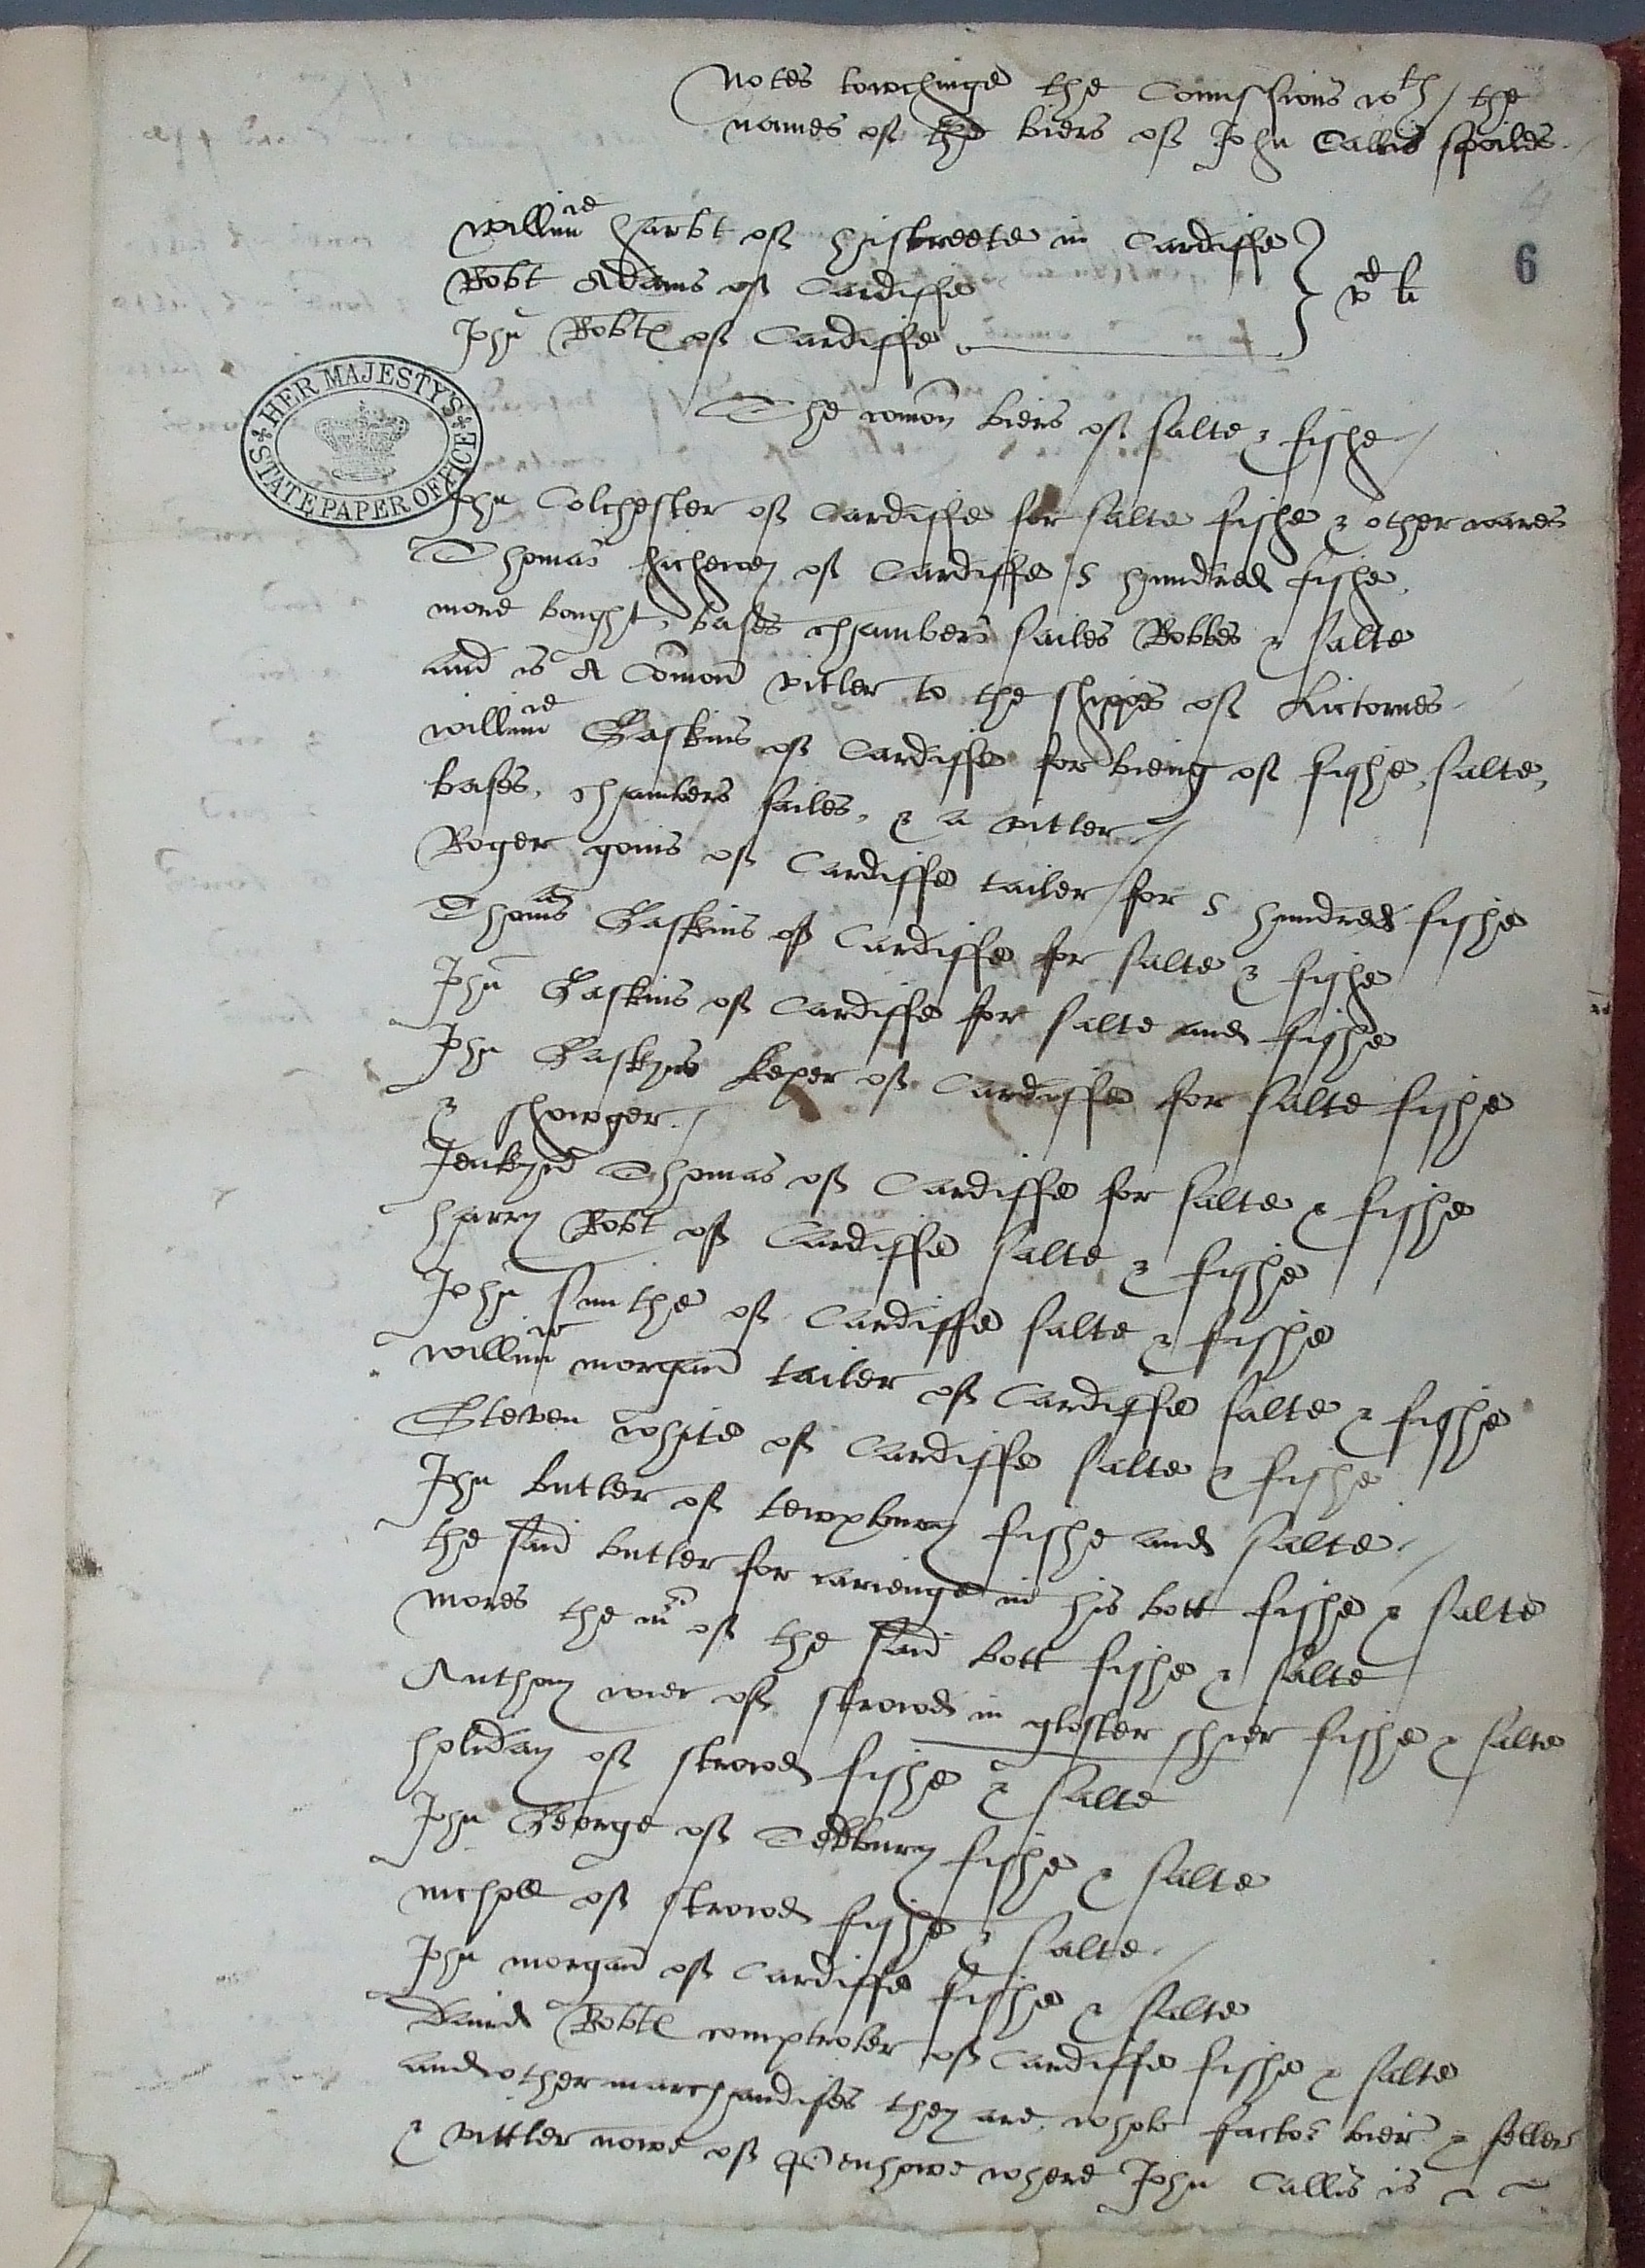 Notes towchinge the Comissions wth / the
names off the biers off John Callis spoiles
6
willm harbt off histreete in Cardiffe
Robt Adams off Cardiffe
John Robts off Cardiffe
HER MAJESTY'S STATE PAPER OFFICE
The comon biers off salte & fishe /
John Colchester off Cardiffe for salte fishe & other wares
Thomas off Cardiffe 5 hundred fishe,
more bought, bases chambers sailes Robbes & salte
and is A Comon vitler to the shippes off
willm Gaskins off Cardiffe for bieng off fishe, salte,
bases, chambers sailes, & a vitler /
Roger goius off Cardiffe tailer for 5 hundred fishe
Thomas Gaskins off Cardiffe for salte & fishe
John Gaskins off Cardiffe for salte and fishe
John Gaskyns keper off Cardiffe for salte fishe
& showger. /
Jenkyn Thomas off Cardiffe for salte & fishe
harry Robt off Cardiffe salte & fishe
John Smithe off Cardiffe salte & fishe
willm morgan tailer off Cardiffe salte & fishe
Steven white off Cardiffe salte & fishe
John butler off tewxbury fishe and salte /
the said butler for carienge in his bott fishe & salte
mores the mr off the said bott fishe & salte
Anthony wier off strowd in gloster shier fishe & salte
holiday off strowd fishe & salte
John George off Tedbury fishe & salte
nicholl off strowd fishe & salte /
John morgan off Cardiffe fishe & salte
David Robts comptroler off Cardiffe fishe & salte
and other marchandises they are whole factor bier & seller
& vittler nowe off Penhowe where John Callis is